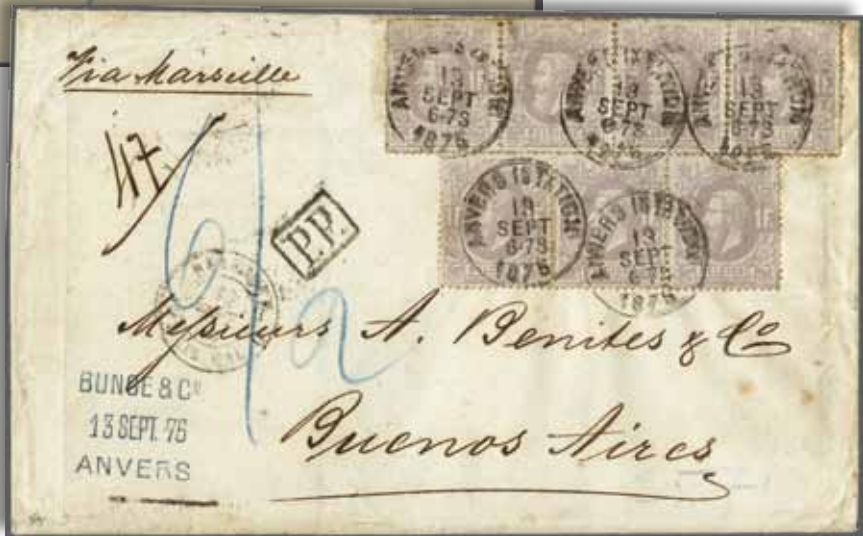 Via Marseille
47
6/2
P.P.
ANVERS (STATION)
13
SEPT
6-7S
1876
ANVERS (STATION)
13
SEPT
6-7S
1876
ANVERS (STATION)
13
SEPT
6-7S
1876
ANVERS (STATION)
13
SEPT
6-7S
1876
ANVERS (STATION)
13
SEPT
6-7S
1876
Messieurs A. Benites & Co
BUNGE & Co
13 SEPT. 76
ANVERS
Buenos Aires